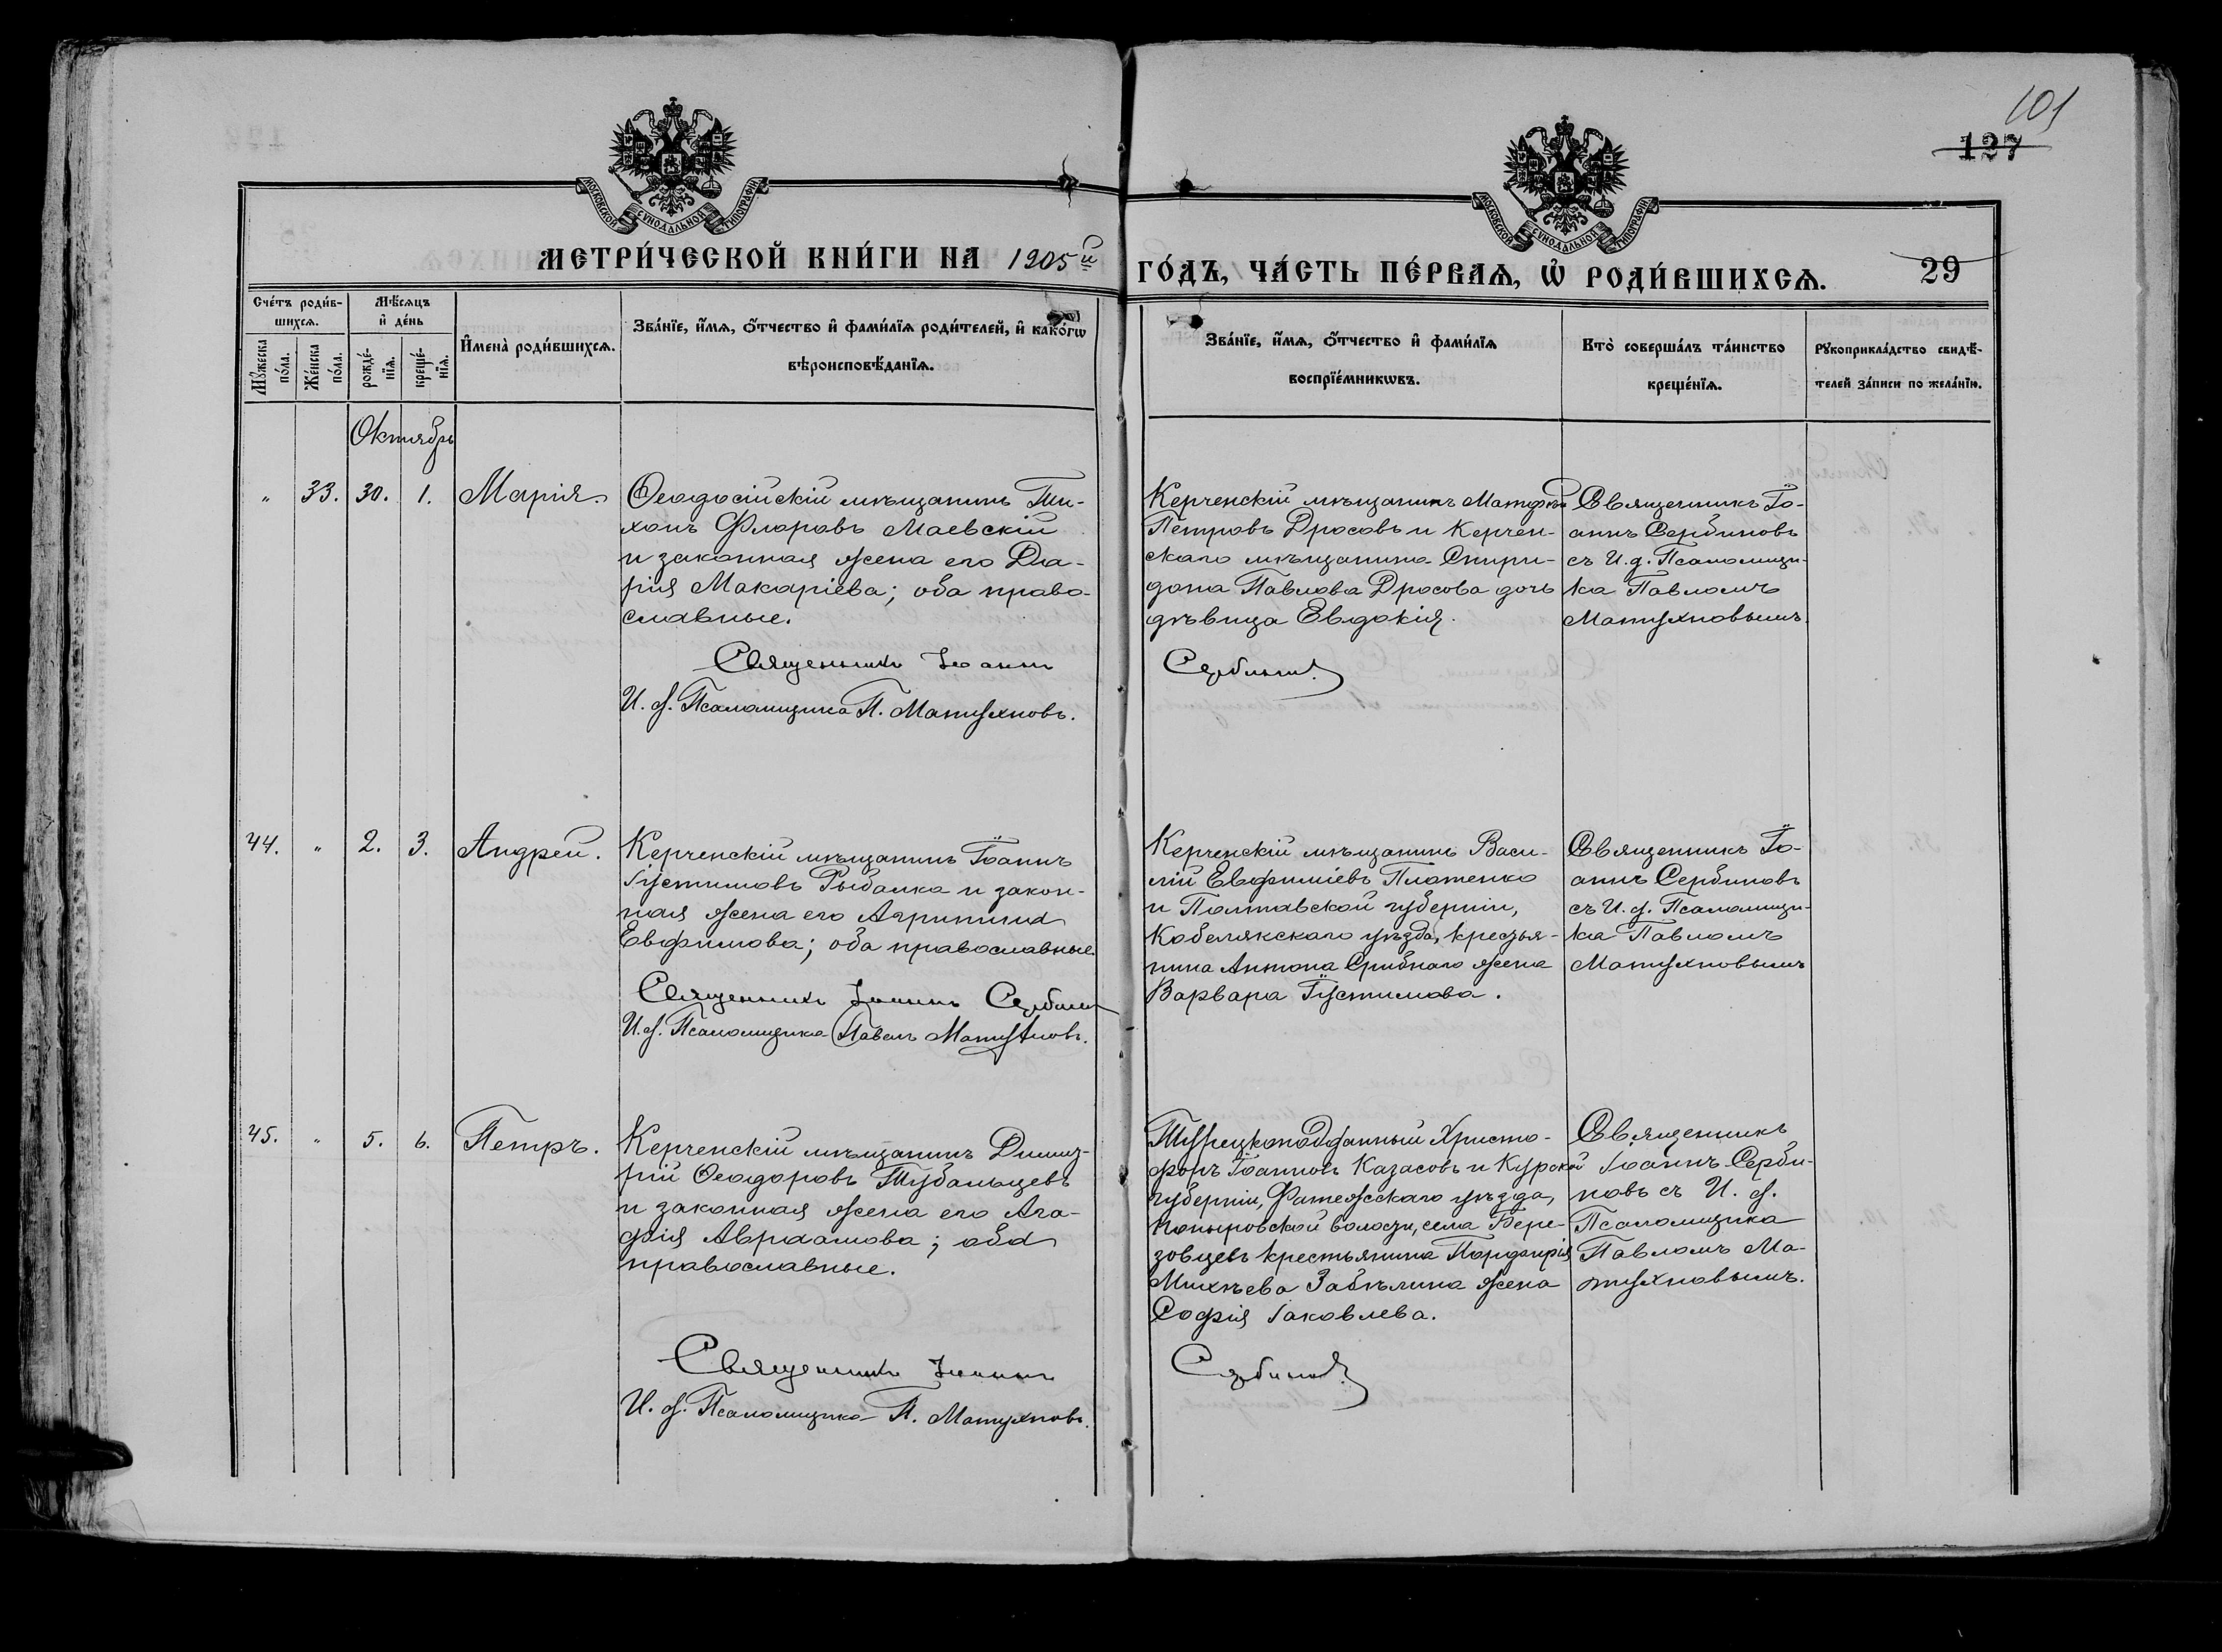 101
127
МОСКОВСКОЙ СѴНОДАЛЬНОЙ ТИПОГРАФІИ
МОСКОВСКОЙ СѴНОДАЛЬНОЙ ТИПОГРАФІИ
МЕТРИ́ЧЕСКОЙ КНИ́ГИ НА 1905й
ГО́ДЪ, ЧА́СТЬ ПЕ́РВАѦ, Ѡ҆ РОДИ́ВШИХСѦ.
29
Сче́тъ роди́в-
шихсѧ.
Мꙋ́жеска по́ла.
Же́нска по́ла.
Мѣ́сѧцъ и҆ де́нь
рожде́-
нїѧ.
креще́-
нїѧ.
И҆мена̀ роди́вшихсѧ.
Зва́нїе, и҆́мѧ, ѻ҆́тчество и҆ фами́лїѧ роди́телей, и҆ како́гѡ
вѣроисповѣ́данїѧ.
Зва́нїе, и҆́мѧ, ѻ҆́тчество и҆ фами́лїѧ
воспрїе́мникѡвъ.
Кто̀ соверша́лъ та́инство
креще́нїѧ.
Рꙋкоприкла́дство свидѣ́-
телей за́писи по жела́нїю.
Октябрь
" 33. 30. 1. Марія.
Ѳеодосійскій мѣщанинъ Ти-
хонъ Флоровъ Маевскій
и законная жена его Да-
рія Макаріева; оба право-
славные.
Священникъ Іоаннъ
И. д. Псаломщика П. Матухновъ.
Керченскій мѣщанинъ Матѳей
Петровъ Дросовъ и Керчен-
скаго мѣщанина Спири-
дона Павлова Дросова дочь
дѣвица Евдокія.
Сербиновъ
Священникъ Іо-
аннъ Сербиновъ
съ И. д. Псаломщи-
ка Павломъ
Матухновымъ.
44. " 2. 3. Андрей.
Керченскій мѣщанинъ Іоаннъ
Іустиновъ Рыбалка и закон-
ная жена его Агриппина
Евфимова; оба православные.
Священникъ Іоаннъ Сербинов
И. д. Псаломщика Павелъ Матухновъ.
Керченскій мѣщанинъ Васи-
лій Евфиміевъ Платенко
и Полтавской губерніи,
Кобелякскаго уѣзда, крестья-
нина Антона Срибнаго жена
Варвара Іустинова.
Священникъ Іо-
аннъ Сербиновъ
съ И. д. Псаломщи-
ка Павломъ
Матухновымъ
45. " 5. 6. Петръ.
Керченскій мѣщанинъ Димит-
рій Ѳеодоровъ Тубальцевъ
и законная жена его Ага-
фія Авраамова; оба
православные.
Священникъ Іоаннъ
И. д. Псаломщика П. Матухновъ.
Турецкоподданный Христо-
форъ Іоанновъ Казасовъ и Курской
губерніи, Фатежскаго уѣзда,
Поныровской волости, села Бере-
зовцевъ крестьянина Порфирія
Михѣева Забѣлина жена
Софія Іаковлева.
Сербиновъ
Священникъ
Іоаннъ Серби-
новъ съ И. д.
Псаломщика
Павломъ Ма-
тухновымъ.